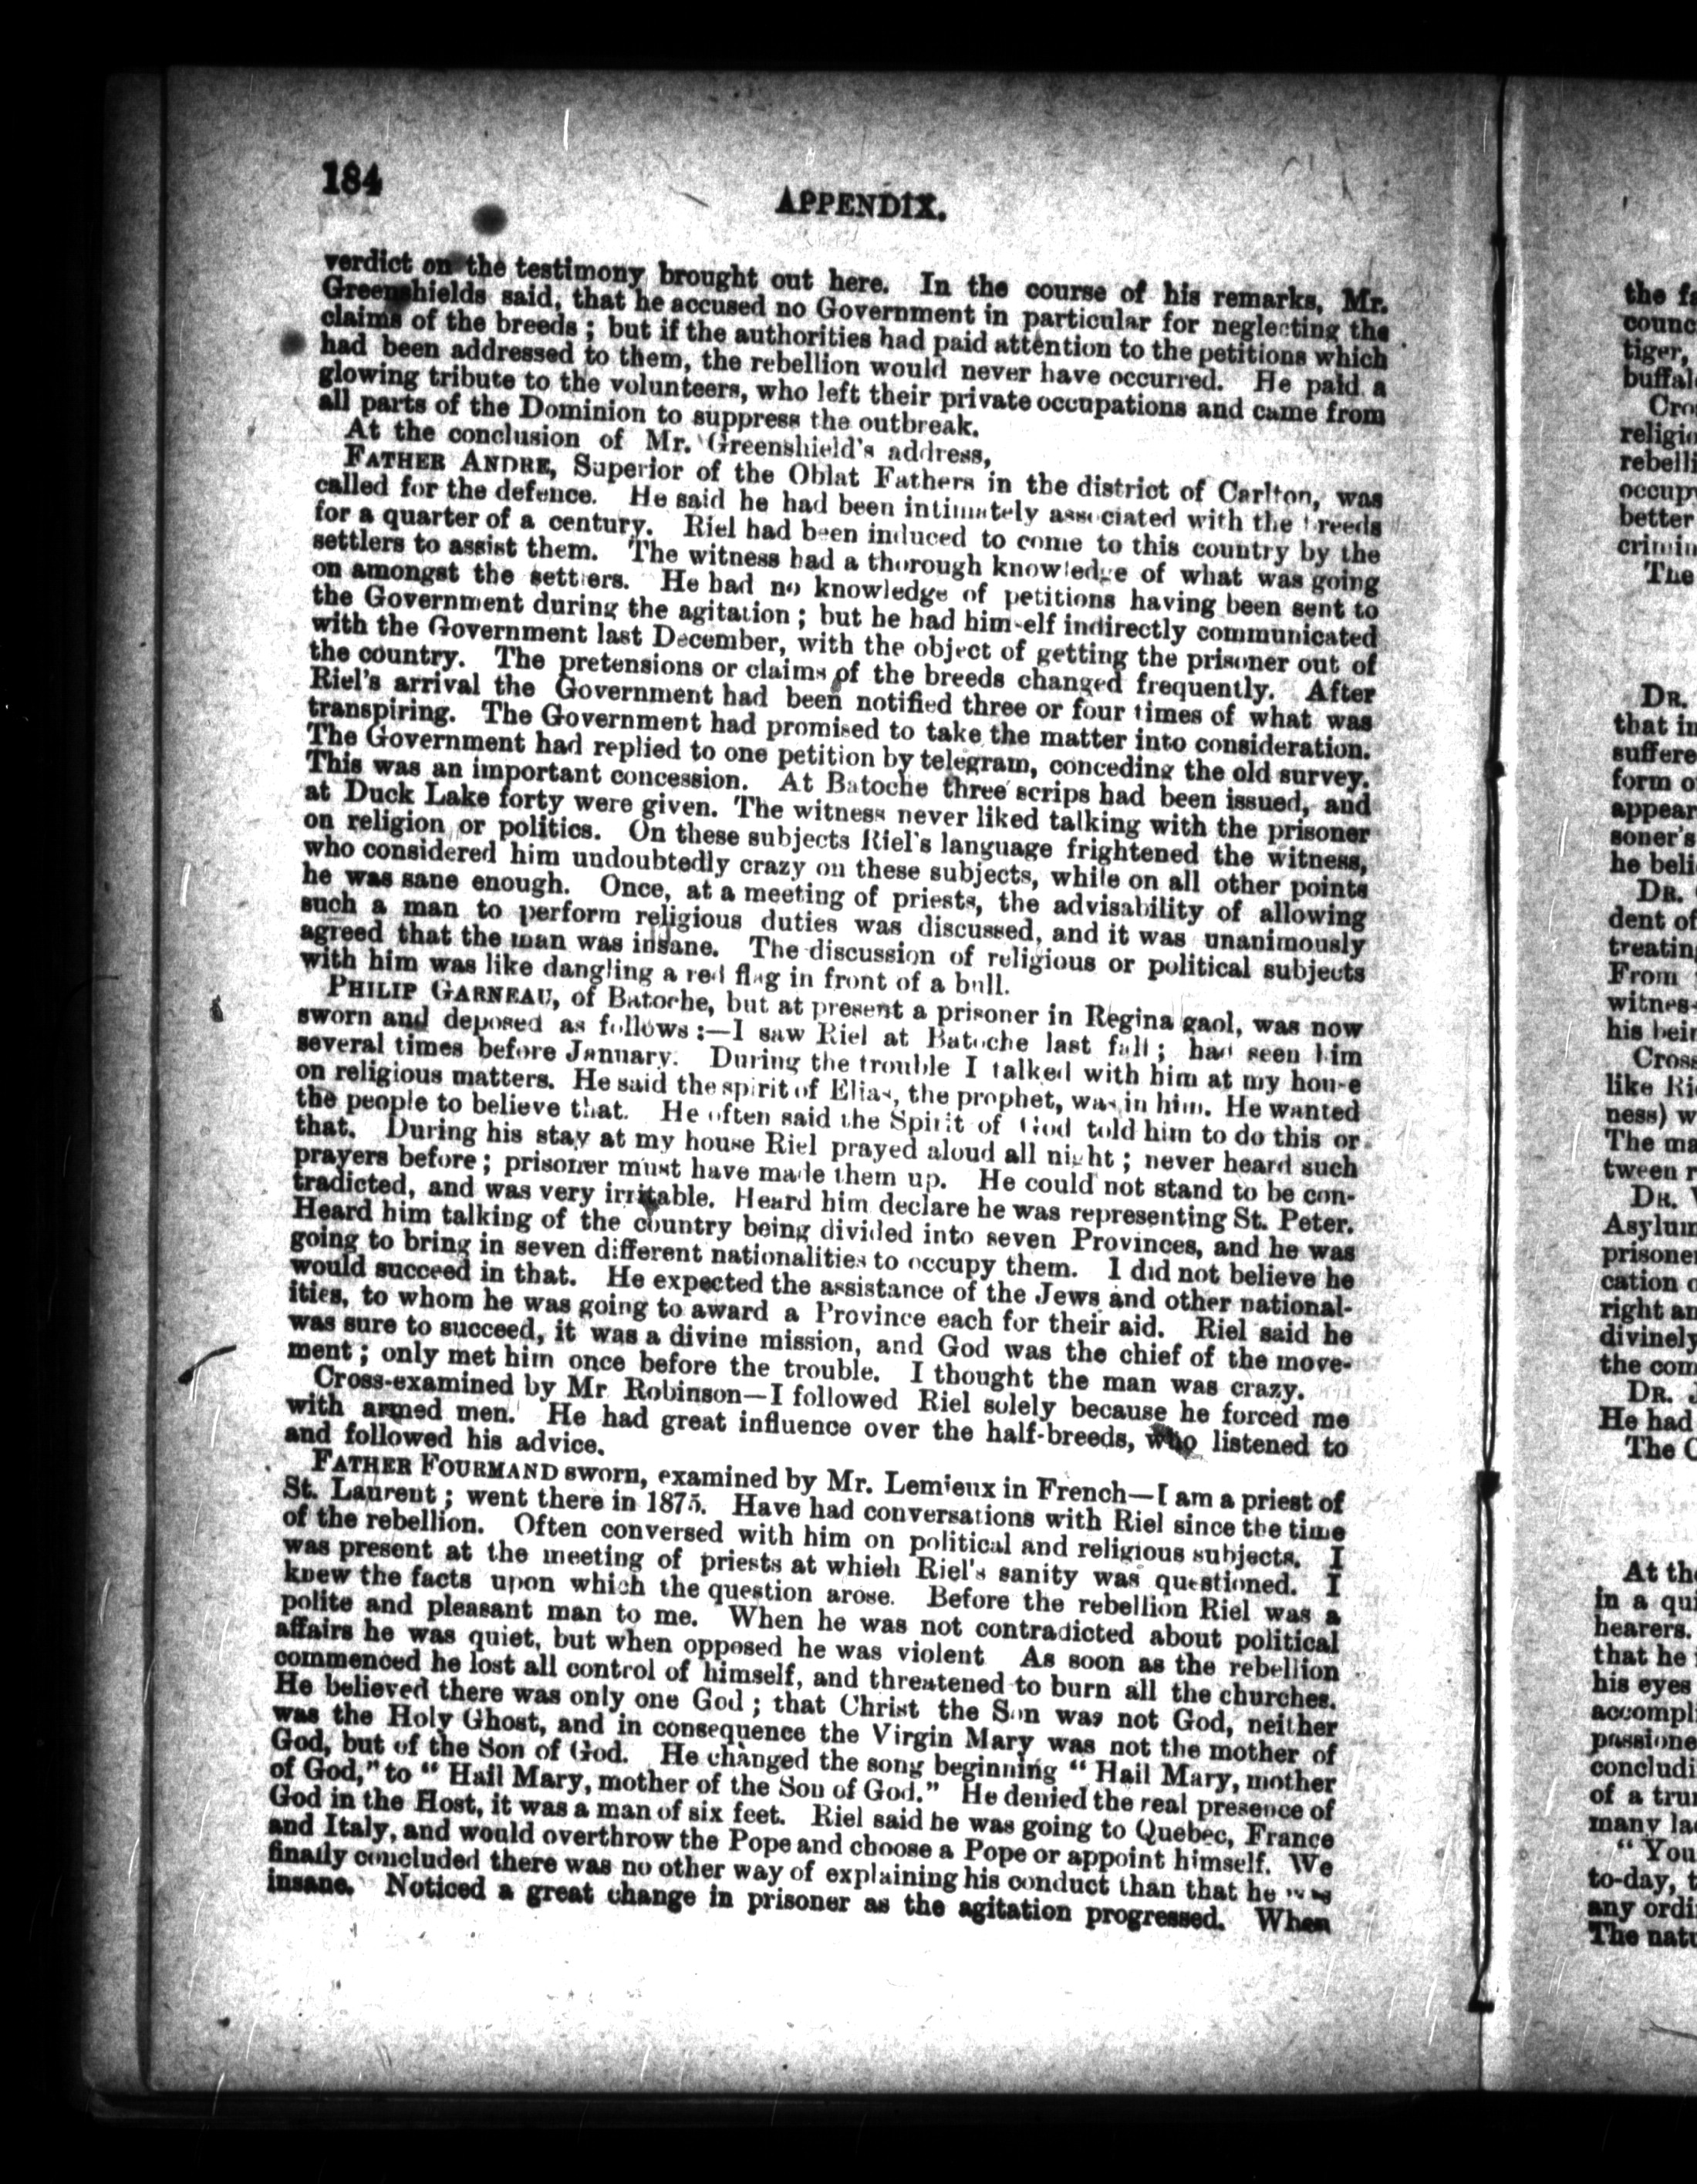 184
APPENDIX.
verdict on the testimony brought out here. In the course of his remarks, Mr.
Greenshields said, that he accused no Government in particular for neglecting the
claims of the breeds; but if the authorities had paid attention to the petitions which
had been addressed to them, the rebellion would never have occurred. He paid a
glowing tribute to the volunteers, who left their private occupations and came from
all parts of the Dominion to suppress the outbreak.
At the conclusion of Mr. Greenshield's address,
FATHER ANDRE, Superior of the Oblat Fathers in the district of Carlton, was
called for the defence. He said he had been intimately associated with the breeds
for a quarter of a century. Riel had been induced to come to this country by the
settlers to assist them. The witness had a thorough knowledge of what was going
on amongst the settlers. He had no knowledge of petitions having been sent to
the Government during the agitation; but he had himself indirectly communicated
with the Government last December, with the object of getting the prisoner out of
the country. The pretensions or claims of the breeds changed frequently. After
Riel's arrival the Government had been notified three or four times of what was
transpiring. The Government had promised to take the matter into consideration.
The Government had replied to one petition by telegram, conceding the old survey.
This was an important concession. At Batoche three scrips had been issued, and
at Duck Lake forty were given. The witness never liked talking with the prisoner
on religion or politics. On these subjects Riel's language frightened the witness,
who considered him undoubtedly crazy on these subjects, while on all other points
he was sane enough. Once, at a meeting of priests, the advisability of allowing
such a man to perform religious duties was discussed, and it was unanimously
agreed that the man was insane. The discussion of religious or political subjects
with him was like dangling a red flag in front of a bull.
PHILIP GARNEAU, of Batoche, but at present a prisoner in Regina gaol, was now
sworn and deposed as follows:—I saw Riel at Batoche last fall; had seen him
several times before January. During the trouble I talked with him at my house
on religious matters. He said the spirit of Elias, the prophet, was in him. He wanted
the people to believe that. He often said the Spirit of God told him to do this or
that. During his stay at my house Riel prayed aloud all night; never heard such
prayers before; prisoner must have made them up. He could not stand to be con-
tradicted, and was very irritable. Heard him declare he was representing St. Peter.
Heard him talking of the country being divided into seven Provinces, and he was
going to bring in seven different nationalities to occupy them. I did not believe he
would succeed in that. He expected the assistance of the Jews and other national-
ities, to whom he was going to award a Province each for their aid. Riel said he
was sure to succeed, it was a divine mission, and God was the chief of the move-
ment; only met him once before the trouble. I thought the man was crazy.
Cross-examined by Mr Robinson—I followed Riel solely because he forced me
with armed men. He had great influence over the half-breeds, who listened to
and followed his advice.
FATHER FOURMAND sworn, examined by Mr. Lemieux in French—I am a priest of
St. Laurent; went there in 1875. Have had conversations with Riel since the time
of the rebellion. Often conversed with him on political and religious subjects. I
was present at the meeting of priests at which Riel's sanity was questioned. I
knew the facts upon which the question arose. Before the rebellion Riel was a
polite and pleasant man to me. When he was not contradicted about political
affairs he was quiet, but when opposed he was violent As soon as the rebellion
commenced he lost all control of himself, and threatened to burn all the churches.
He believed there was only one God; that Christ the Son was not God, neither
was the Holy Ghost, and in consequence the Virgin Mary was not the mother of
God, but of the Son of God. He changed the song beginning "Hail Mary, mother
of God," to "Hail Mary, mother of the Son of God." He denied the real presence of
God in the Host, it was a man of six feet. Riel said he was going to Quebec, France
and Italy, and would overthrow the Pope and choose a Pope or appoint himself. We
finally concluded there was no other way of explaining his conduct than that he was
insane. Noticed a great change in prisoner as the agitation progressed. When
the fa
counc
tiger,
buffal
Cro
religio
rebelli
occup
better
crimin
The
DR.
that in
suffere
form o
appear
soner's
he beli
DR.
dent of
treatin
From
witnes-
his bein
Cross
like Ri
ness) w
The ma
tween r
DR.
Asylum
prisoner
cation o
right an
divinely
the com
DR. J
He had
The C
At the
in a qui
hearers.
that he
his eyes
accompli
passione
concludi
of a trum
many la
"You
to-day, t
any ordi
The natu